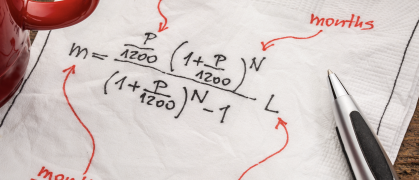 months
m = P/1200 (1 + P/1200)^N
(1 + P/1200)^N - 1 L